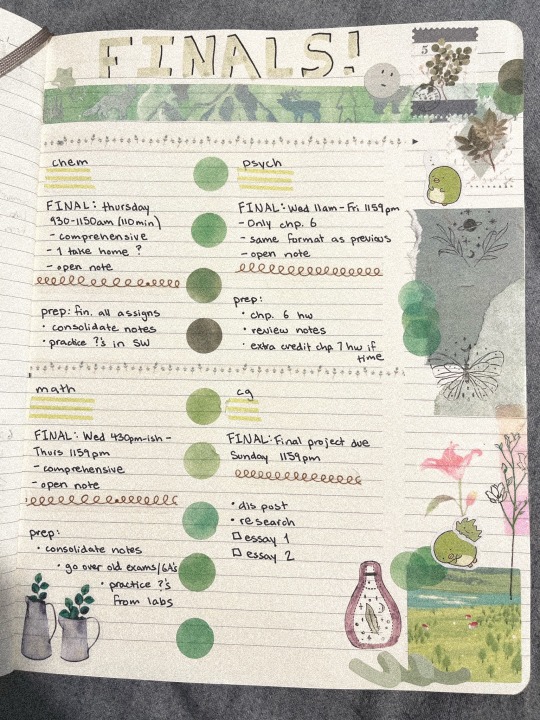 FINALS!
5
chem
FINAL: thursday
930-1150am (110min)
- comprehensive
- 1 take home ?
- open note
prep: fin. all assigns
• consolidate notes
• practice ?'s in SW
psych
FINAL: Wed 11am - Fri 1159pm
- Only chp. 6
- same format as previous
- open note
prep:
• chp. 6 hw
• review notes
• extra credit chp 7 hw if
time
math
FINAL: Wed 430pm-ish -
Thurs 1159pm
- comprehensive
- open note
prep:
• consolidate notes
• go over old exams/GA's
• practice ?'s
from labs
cg
FINAL: Final project due
Sunday 1159pm
• dis post
• research
☐ essay 1
☐ essay 2